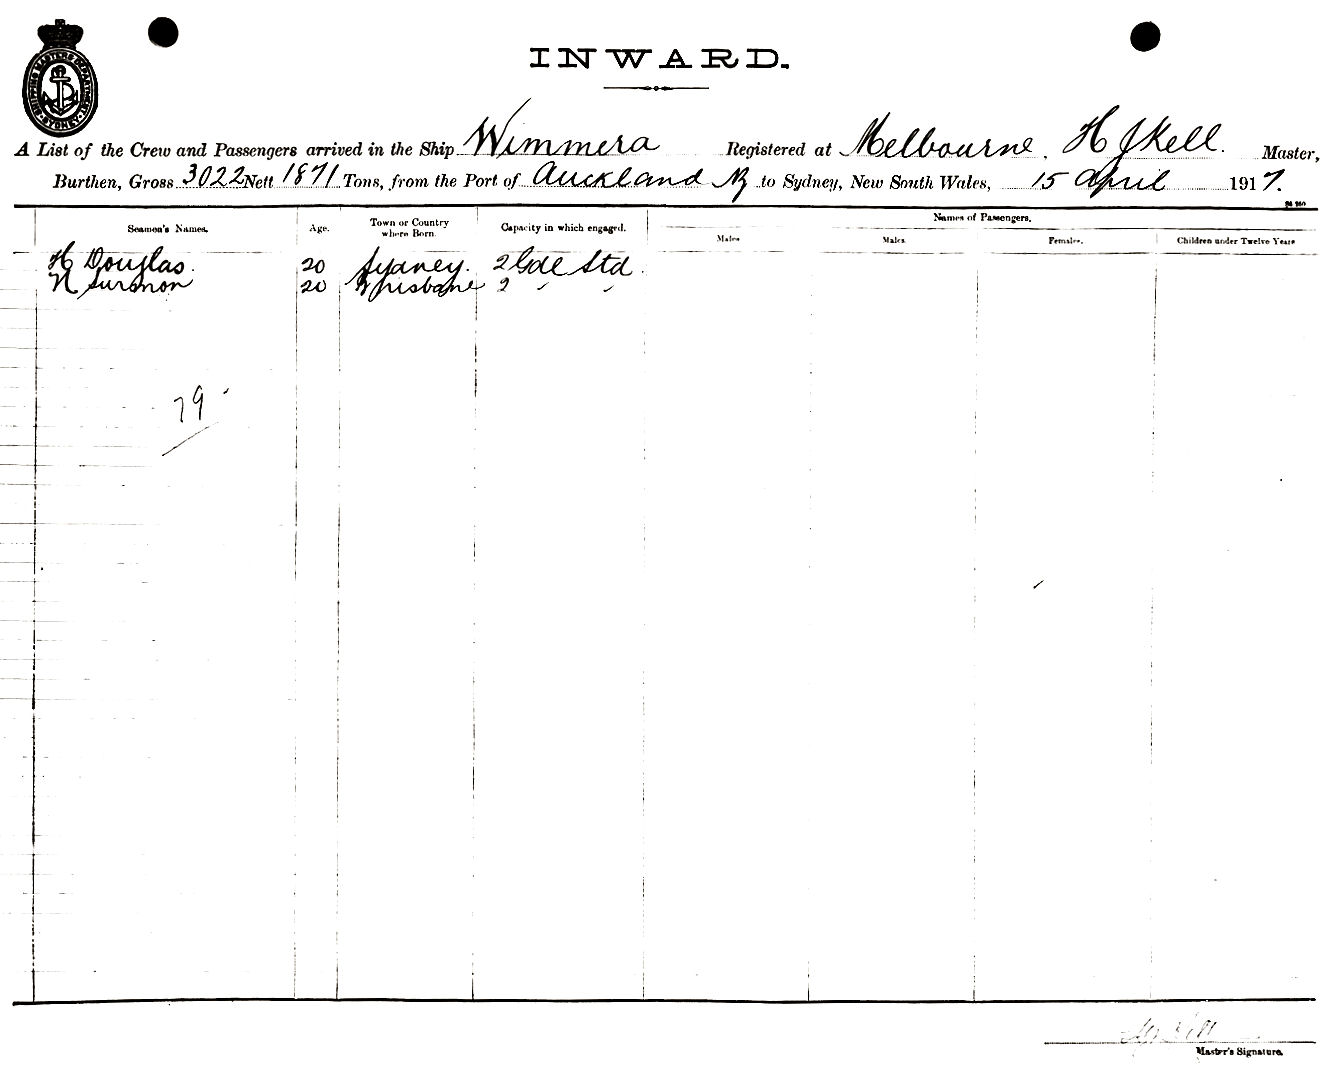 SHIPPING MASTERS DEPARTMENT SYDNEY
INWARD.
A List of the Crew and Passengers arrived in the Ship Wimmera Registered at Melbourne, H J Kell. Master,
Burthen, Gross 3022 Nett 1871 Tons, from the Port of Auckland NZ to Sydney, New South Wales, 15 April 1917.
Seamen's Names. Age. Town or Country where Born. Capacity in which engaged. Names of Passengers.
Males Males. Females. Children under Twelve Years
H Douglas. 20 Sydney. 2 Gde Std.
N 20 Brisbane 2 " "
79
Master's Signature.